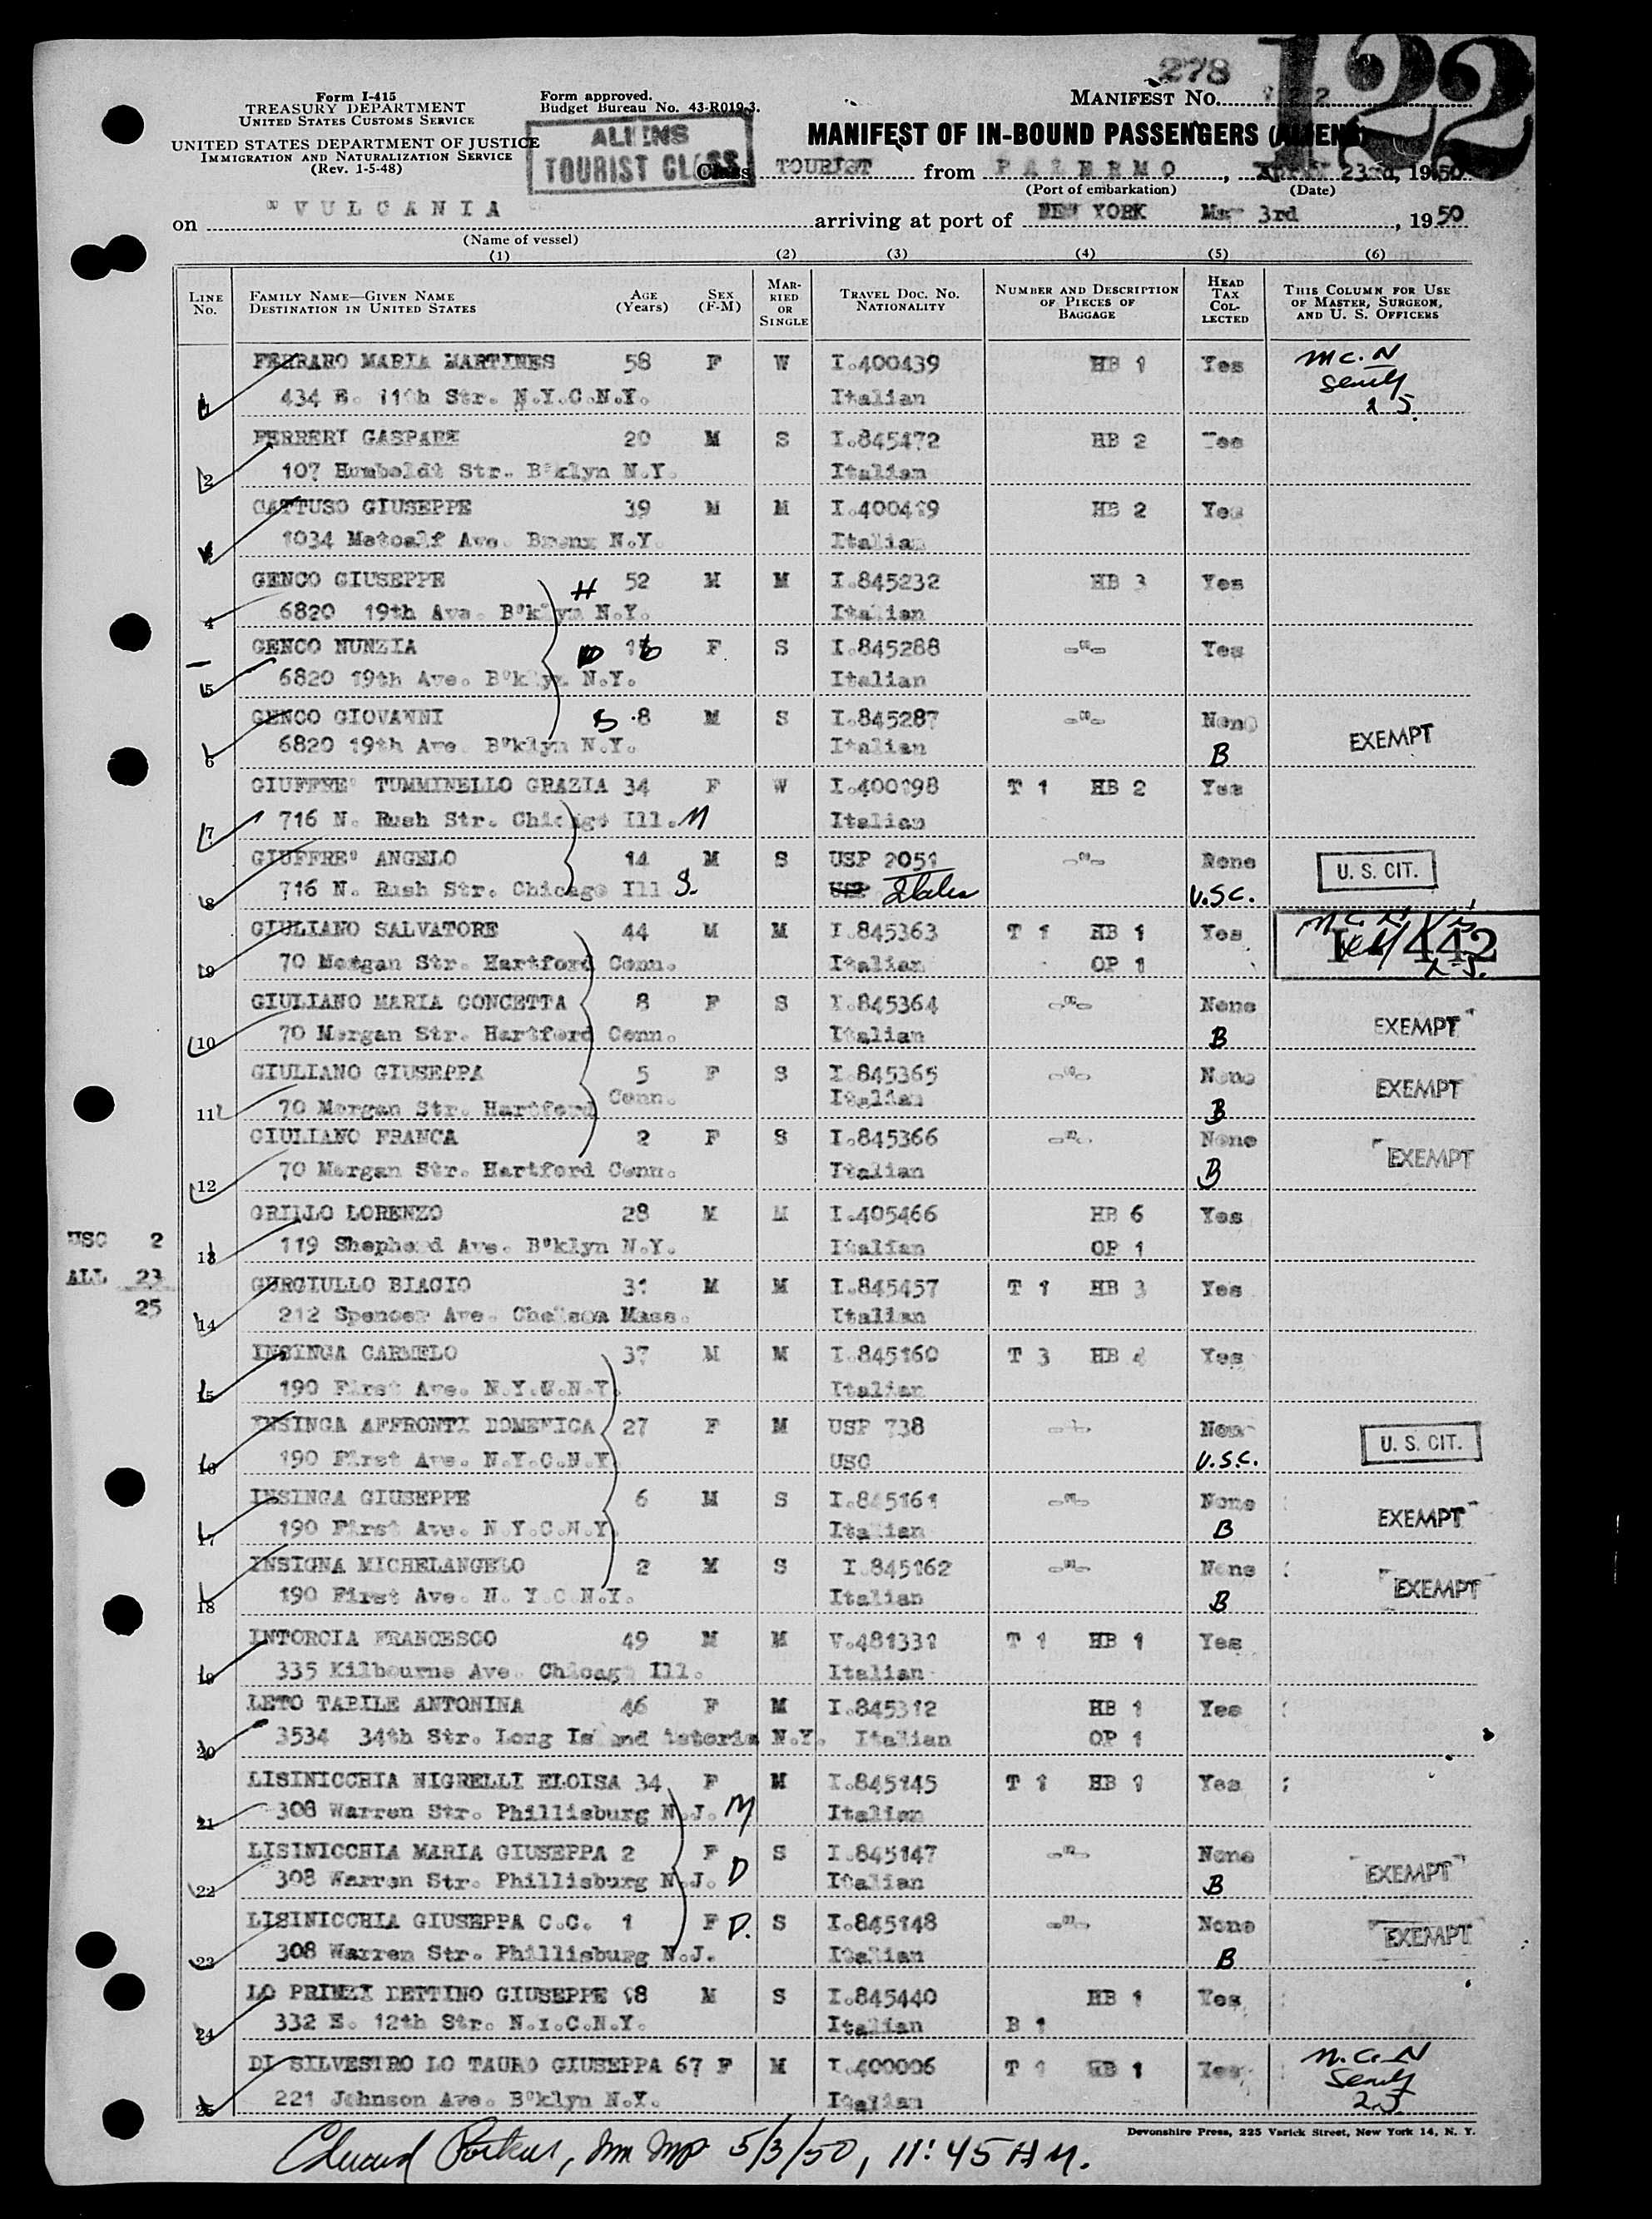 122
278
Form I-415
TREASURY DEPARTMENT
UNITED STATES CUSTOMS SERVICE
UNITED STATES DEPARTMENT OF JUSTICE
IMMIGRATION AND NATURALIZATION SERVICE
(Rev. 1-5-48)
Form approved.
Budget Bureau No. 43-R019.3.
ALIENS
TOURIST CLASS
MANIFEST NO.
MANIFEST OF IN-BOUND PASSENGERS (ALIENS)
Class TOURIST from PALERMO, April 23rd, 1950
(Port of embarkation) (Date)
on "VULCANIA arriving at port of NEW YORK May 3rd, 1950
(Name of vessel)
(1) (2) (3) (4) (5) (6)
LINE No. FAMILY NAME—GIVEN NAME DESTINATION IN UNITED STATES AGE (Years) SEX (F-M) MARRIED OR SINGLE TRAVEL DOC. NO. NATIONALITY NUMBER AND DESCRIPTION OF PIECES OF BAGGAGE HEAD TAX COLLECTED THIS COLUMN FOR USE OF MASTER, SURGEON, AND U. S. OFFICERS
FERRARO MARIA MARTINES 58 F W I.400439 HB 1 Yes M C. N
1 434 E. 11th Str. N.Y.C.N.Y. Italian 25.
FERRERI GASPARE 20 M S I.845472 HB 2 Yes
2 107 Humboldt Str. B'klyn N.Y. Italian
GATTUSO GIUSEPPE 39 M M I.400419 HB 2 Yes
3 1034 Metcalf Ave. Bronx N.Y. Italian
GENCO GIUSEPPE H 52 M M I.845232 HB 3 Yes
4 6820 19th Ave. B'klyn N.Y. Italian
GENCO NUNZIA D 16 F S I.845288 -"- Yes
5 6820 19th Ave. B'klyn N.Y. Italian
GENCO GIOVANNI S 8 M S I.845287 -"- None EXEMPT
6 6820 19th Ave. B'klyn N.Y. Italian B
GIUFFRE' TUMMINELLO GRAZIA 34 F W I.400198 T 1 HB 2 Yes
7 716 N. Rush Str. Chicago Ill. M Italian
GIUFFRE' ANGELO 14 M S USP 2051 -"- None U. S. CIT.
8 716 N. Rush Str. Chicago Ill S. Italian U.S.C.
GIULIANO SALVATORE 44 M M I.845363 T 1 HB 1 Yes I-442
9 70 Morgan Str. Hartford Conn. Italian OP 1
GIULIANO MARIA CONCETTA 8 F S I.845364 -"- None EXEMPT
10 70 Morgan Str. Hartford Conn. Italian B
GIULIANO GIUSEPPA 5 F S I.845365 -"- None EXEMPT
11 70 Morgan Str. Hartford Conn. Italian B
GIULIANO FRANCA 2 F S I.845366 -"- None EXEMPT
12 70 Morgan Str. Hartford Conn. Italian B
GRILLO LORENZO 28 M M I.405466 HB 6 Yes
USC 2
13 119 Shepherd Ave. B'klyn N.Y. Italian OP 1
ALL 23
25
GURCIULLO BIAGIO 31 M M I.845457 T 1 HB 3 Yes
14 212 Spencer Ave. Chelsea Mass. Italian
INSINGA CARMELO 37 M M I.845160 T 3 HB 4 Yes
15 190 First Ave. N.Y.C.N.Y. Italian
INSINGA AFFRONTI DOMENICA 27 F M USP 738 -"- None U. S. CIT.
16 190 First Ave. N.Y.C.N.Y USC U.S.C.
INSINGA GIUSEPPE 6 M S I.845161 -"- None EXEMPT
17 190 First Ave. N.Y.C.N.Y. Italian B
INSIGNA MICHELANGELO 2 M S I.845162 -"- None EXEMPT
18 190 First Ave. N. Y.C.N.Y. Italian B
INTORCIA FRANCESCO 49 M M V.481331 T 1 HB 1 Yes
19 335 Kilbourne Ave. Chicago Ill. Italian
LETO TABILE ANTONINA 46 F M I.845312 HB 1 Yes
20 3534 34th Str. Long Island Astoria N.Y. Italian OP 1
LISINICCHIA NIGRELLI ELOISA 34 F M I.845145 T 1 HB 1 Yes
21 308 Warren Str. Phillisburg N.J. M Italian
LISINICCHIA MARIA GIUSEPPA 2 F S I.845147 -"- None EXEMPT
22 308 Warren Str. Phillisburg N.J. D Italian B
LISINICCHIA GIUSEPPA C.C. 1 F D. S I.845148 -"- None EXEMPT
23 308 Warren Str. Phillisburg N.J. Italian B
LO PRINZI DETTINO GIUSEPPE 18 M S I.845440 HB 1 Yes
24 332 E. 12th Str. N.Y.C.N.Y. Italian B 1
DI SILVESTRO LO TAURO GIUSEPPA 67 F M I.400006 T 1 HB 1 Yes M. C. N
25 221 Johnson Ave. B'klyn N.Y. Italian 2.5
Devonshire Press, 225 Varick Street, New York 14, N. Y.
Edward 5/3/50, 11:45 AM.